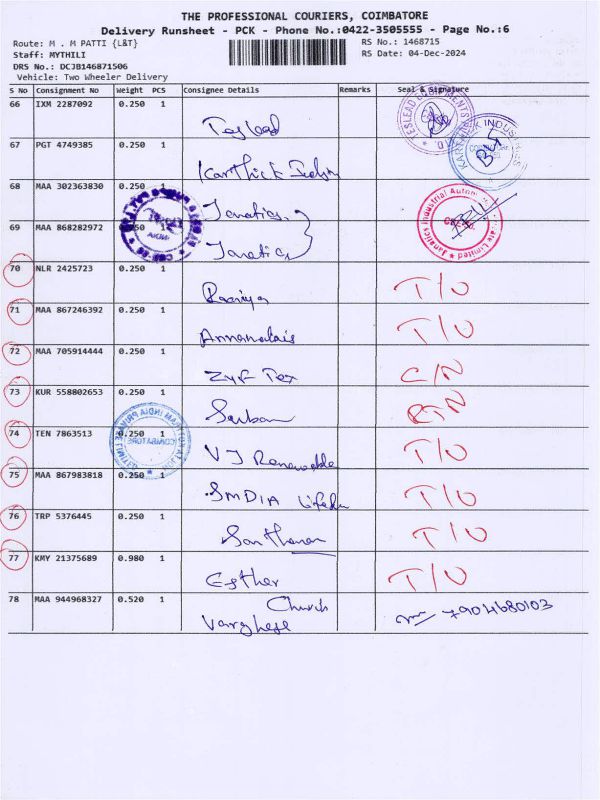 THE PROFESSIONAL COURIERS, COIMBATORE
Delivery Runsheet - PCK - Phone No.:0422-3505555 - Page No.:6
Route: M . M PATTI {L&T} RS No.: 1468715
Staff: MYTHILI RS Date: 04-Dec-2024
DRS No.: DCJB146871506
Vehicle: Two Wheeler Delivery
S No Consignment No Weight PCS Consignee Details Remarks Seal & Signature
66 IXM 2287092 0.250 1 Teslead
67 PGT 4749385 0.250 1 Karthick
68 MAA 302363830 0.250 1 Janatics
69 MAA 868282972 0.250 1 Janatics
70 NLR 2425723 0.250 1 T/O
71 MAA 867246392 1 0.250 Annamalais T/O
72 MAA 705914444 0.250 1 Zyf Tex C/N
73 KUR 558802653 0.250 1 RTN
74 TEN 7863513 0.250 1 VJ Renewable T/O
75 MAA 867983818 0.250 1 SMDIA T/O
76 TRP 5376445 0.250 1 Santhanam T/O
77 KMY 21375689 0.980 1 Esther T/O
78 MAA 944968327 0.520 1 Church 7904680103
Varghese